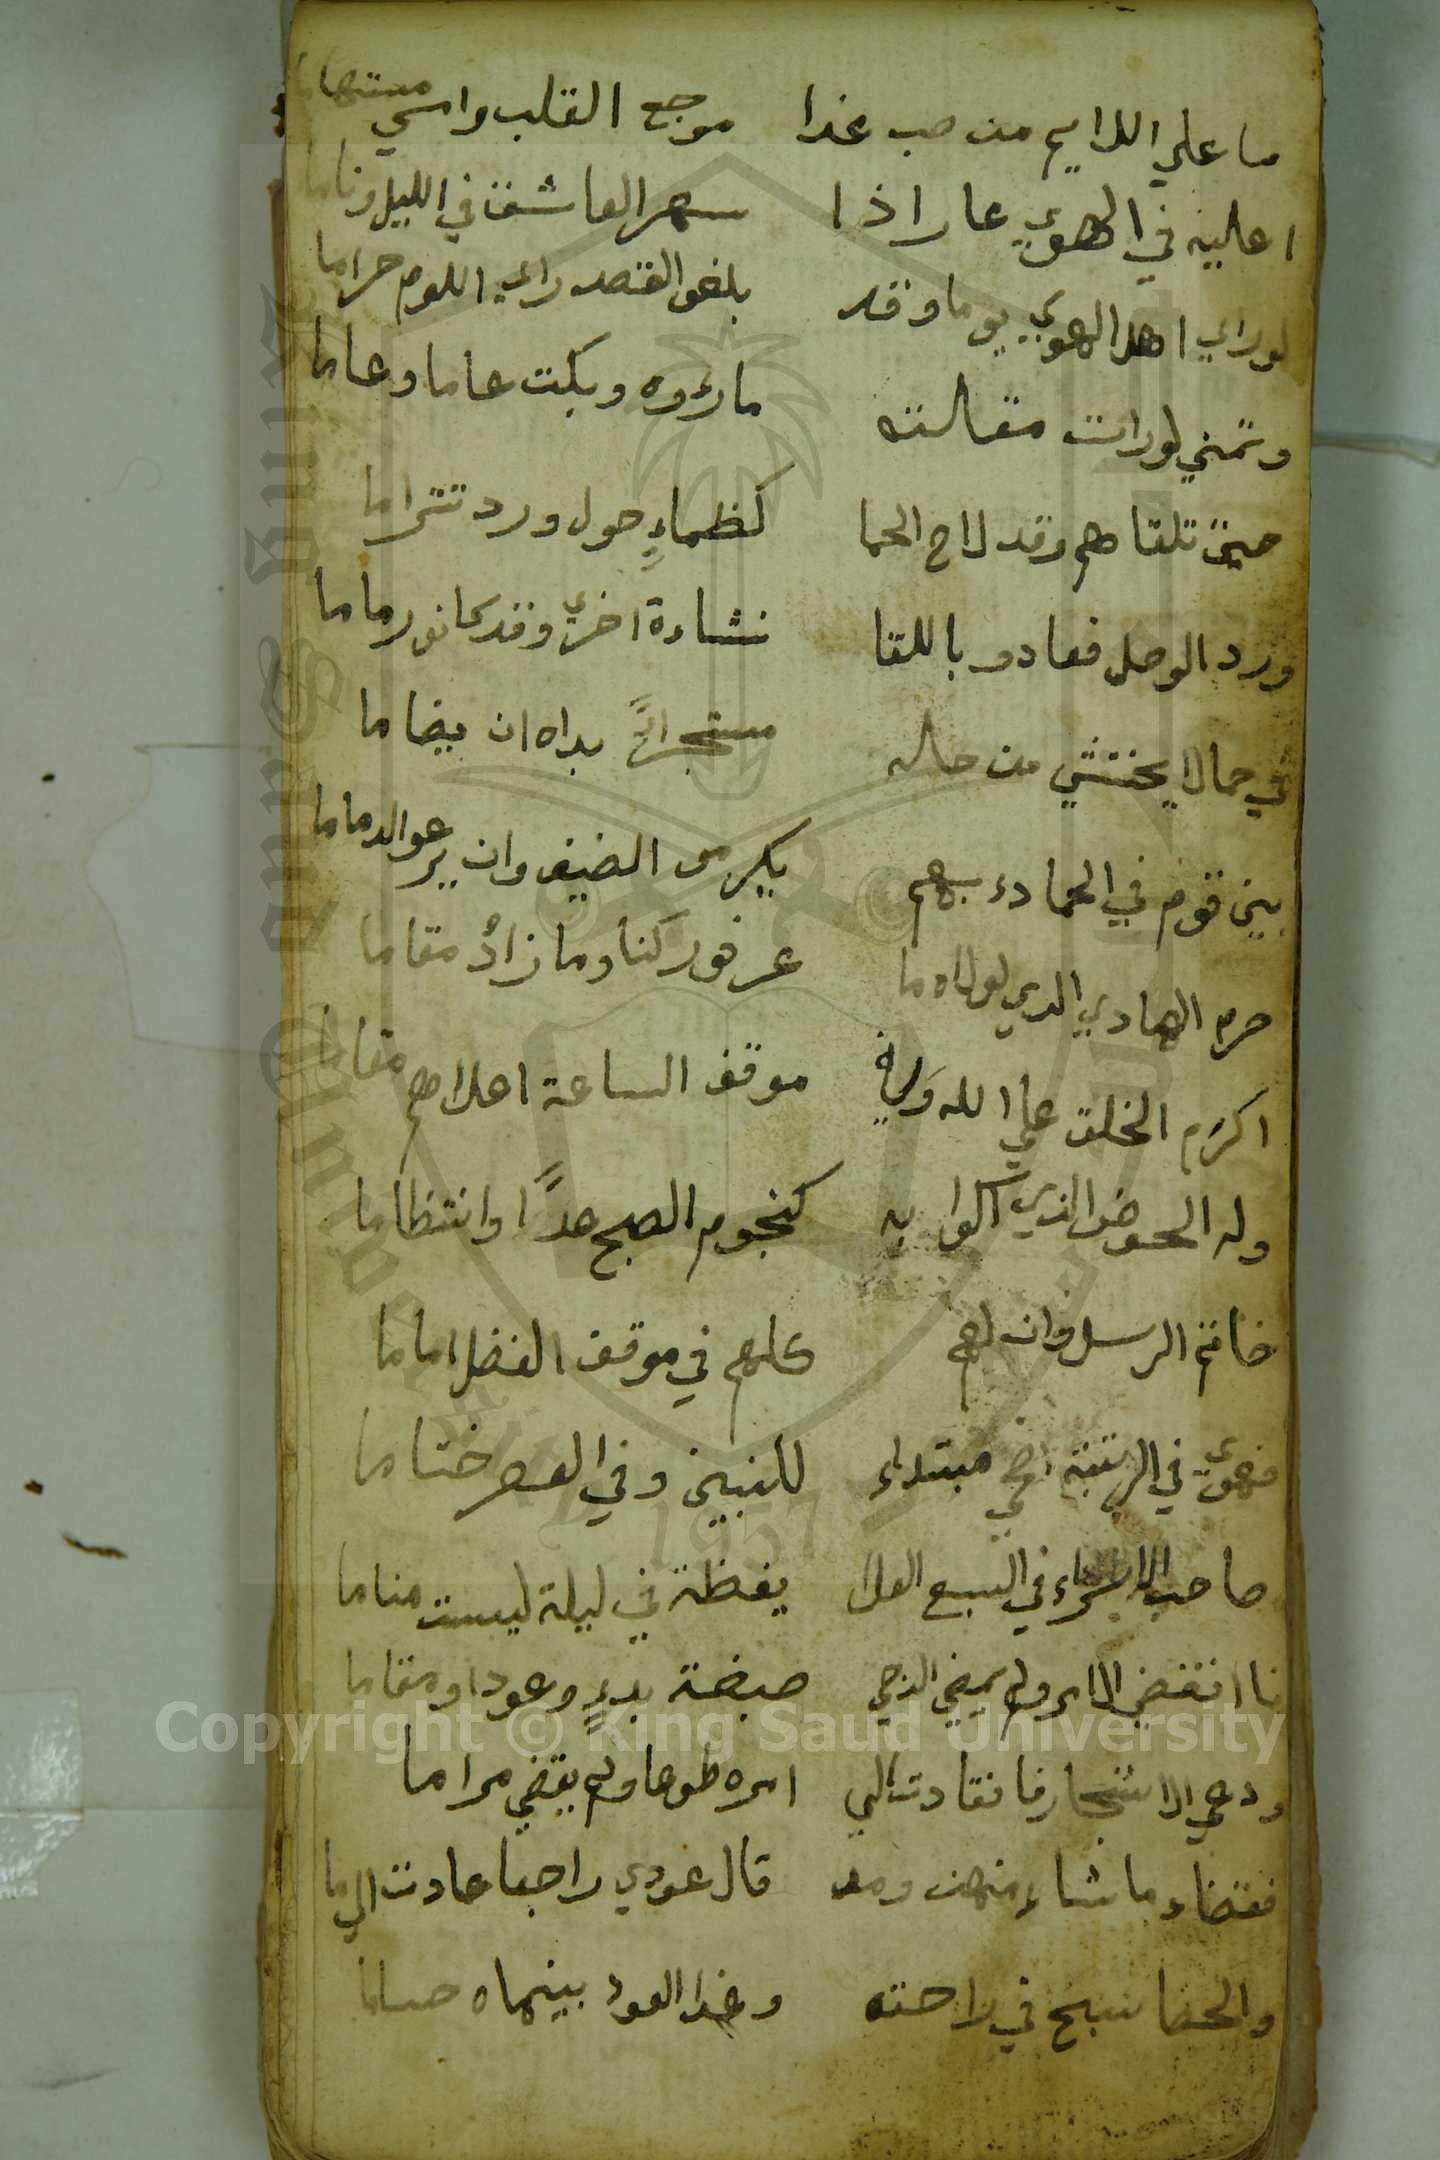 ما علي اللايم من صب غدا موجع القلب وامسي مستهاما
اعليه في الهوي عار اذا سهر العاشق في الليل وناما
لوراي اهل الهوي يوما وقد بلغو القصد راي اللوم حراما
وتمني لورات مقالته ما رؤوه وبكت عاما وعاما
حين تلقاهم وقد لاح الحما كظماءٍ حول ورد تتراما
ورد الوصل فعادو باللقا نشاءة اخري وقد كانو رماما
في حما لا يختشي من حاله مستجراً بداه ان يضاما
بين قوم في الحما دء بهم يكرمو الضيف وان يرعو الدماما
حرم الهادي الدي لولاه ما عرفو ركنا وما زاد مقاما
اكرم الخلق علي الله وفي موقف الساعة اعلاهم مقاما
وله الحوض الذي اكوا به كنجوم الصبح هدًا وانتظاما
خاتم الرسل وان لهم كلهم في موقف الفضل اماما
فهو في الرتبة اضحي مبتداء للنبين وفي العصر ختاما
صاحب الاسراء في السبع العلا يغظة في ليلة ليست مناما
ما انقضي الامر ولم يمضي الدجي صبغة بدءٍ وعودا ومقاما
ودعي الاشجار فانقادت الي امره طوعا ولم يقضي مراما
فقضا ما شاء منهن ومد قال عودي راجعا عادت الي ما
والحصا سبح في راحته وغدا العود بيمناه حساما
Copyright © King Saud University
King Saud University
1957